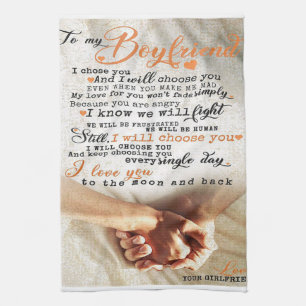 To my Boyfriend
I chose you
And I will choose you
EVEN WHEN YOU MAKE ME MAD
My love for you won't fade simply
Because you are angry
I know we will fight
WE WILL BE FRUSTRATED
WE WILL BE HUMAN
Still, I will choose you
I WILL CHOOSE YOU
And keep choosing you
every single day
I love you
to the moon and back
YOUR GIRLFRIE